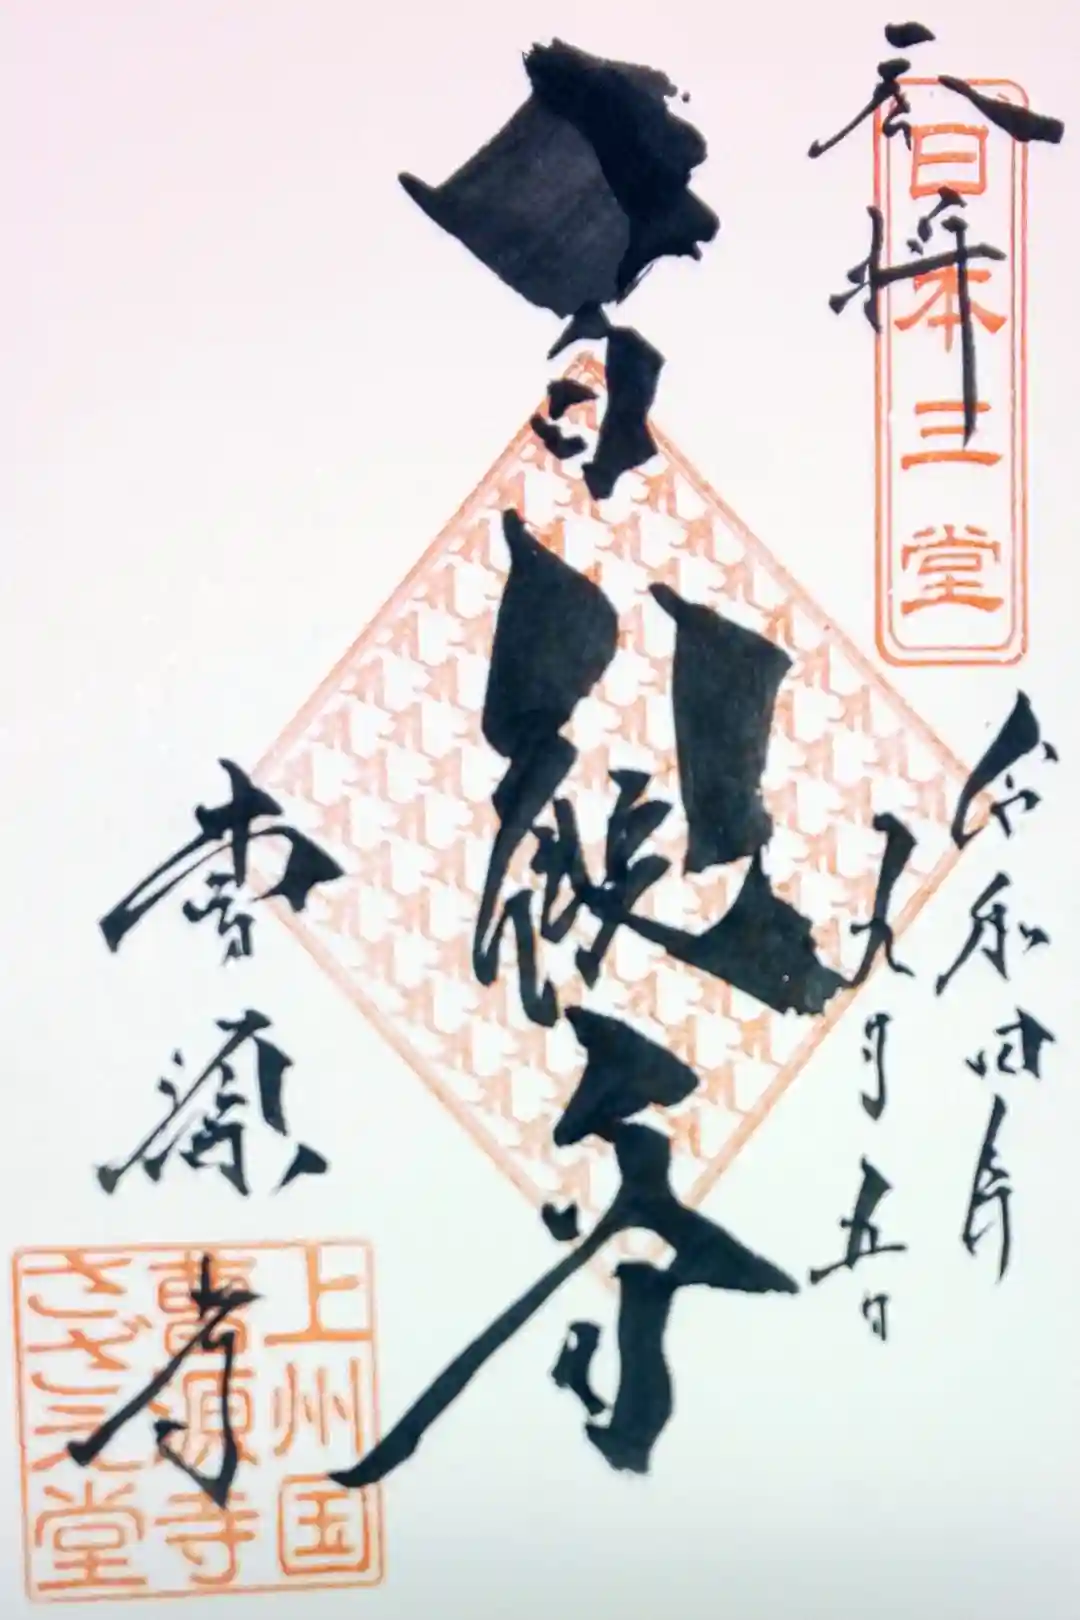 奉拝
日本三堂
令和四年
九月五日
曹源寺
上州国
曹源寺
さざえ堂